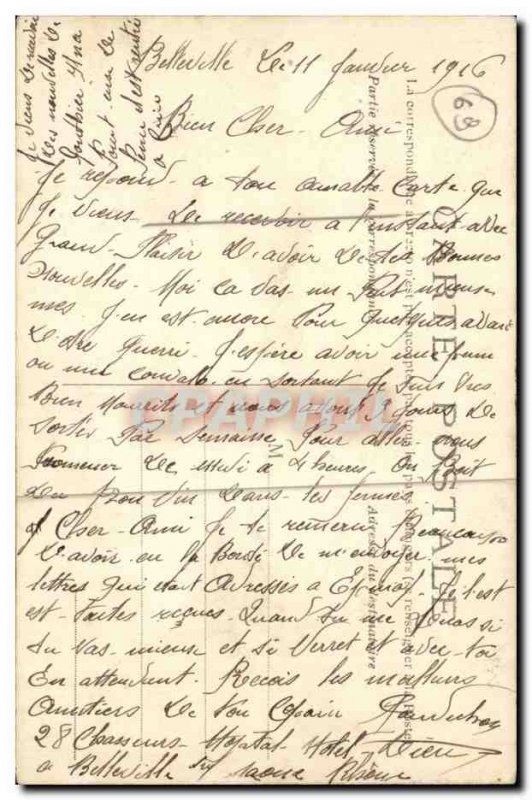 Belleville Le 11 Janvier 1916
Bien Cher Ami
Je repond a ton aimable Carte que
Je viens de recevoir a l'instant avec
Grand Plaisir d'avoir de tes Bonnes
Nouvelles. Moi ça vas un Peut mieuse
mes J'en est encore Pour quelques avant
d'etre guerri J'espère avoir une
ou une convalo en sortant Je suis Tres
Bien nourrit et nous avont 3 Jours de
Sortie Par Semaine Pour aller nous
Promener de midi a 4 heures On Boit
du Bon Vin dans les fermes
Cher Ami Je te remerci Beaucoup
d'avoir eu la Bonté de m'envoyer mes
lettres qui etait Adresses a Epinal Je l'est
est toutes reçues. Quand tu me diras si
tu vas mieuse et si Verret et avec toi
En attendent Recois les meilleurs
Amitiers de ton Copain
28 Chasseurs Hopital Hotel Dieu
a Belleville sur Saone Rhône
Je viens de
des nouvelles de
69
CARTE POSTALE
La correspondance au recto n'est pas acceptée par tous les pays étrangers
Partie réservée à la correspondance
Adresse du destinataire
M
CPAPHIL